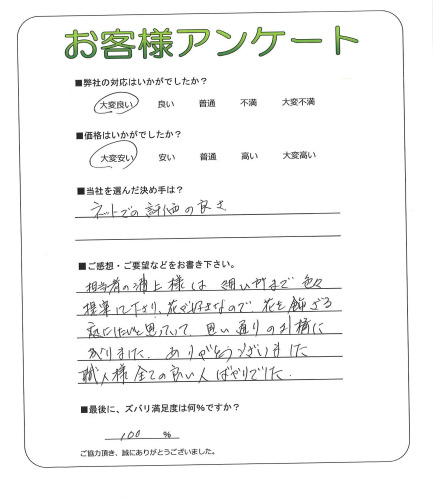 お客様アンケート
■弊社の対応はいかがでしたか?
大変良い 良い 普通 不満 大変不満
■価格はいかがでしたか?
大変安い 安い 普通 高い 大変高い
■当社を選んだ決め手は?
ネットでの評価の良さ
■ご感想・ご要望などをお書き下さい。
担当者の浦上様は 細い所まで 色々
提案して下さり、花が好きなので 花を飾ざる
庭にしたいと思っていて 思い通りのお
ありがとうございました
職人様全ての良い人ばかりでした.
■最後に、ズバリ満足度は何%ですか?
100 %
ご協力頂き、誠にありがとうございました。